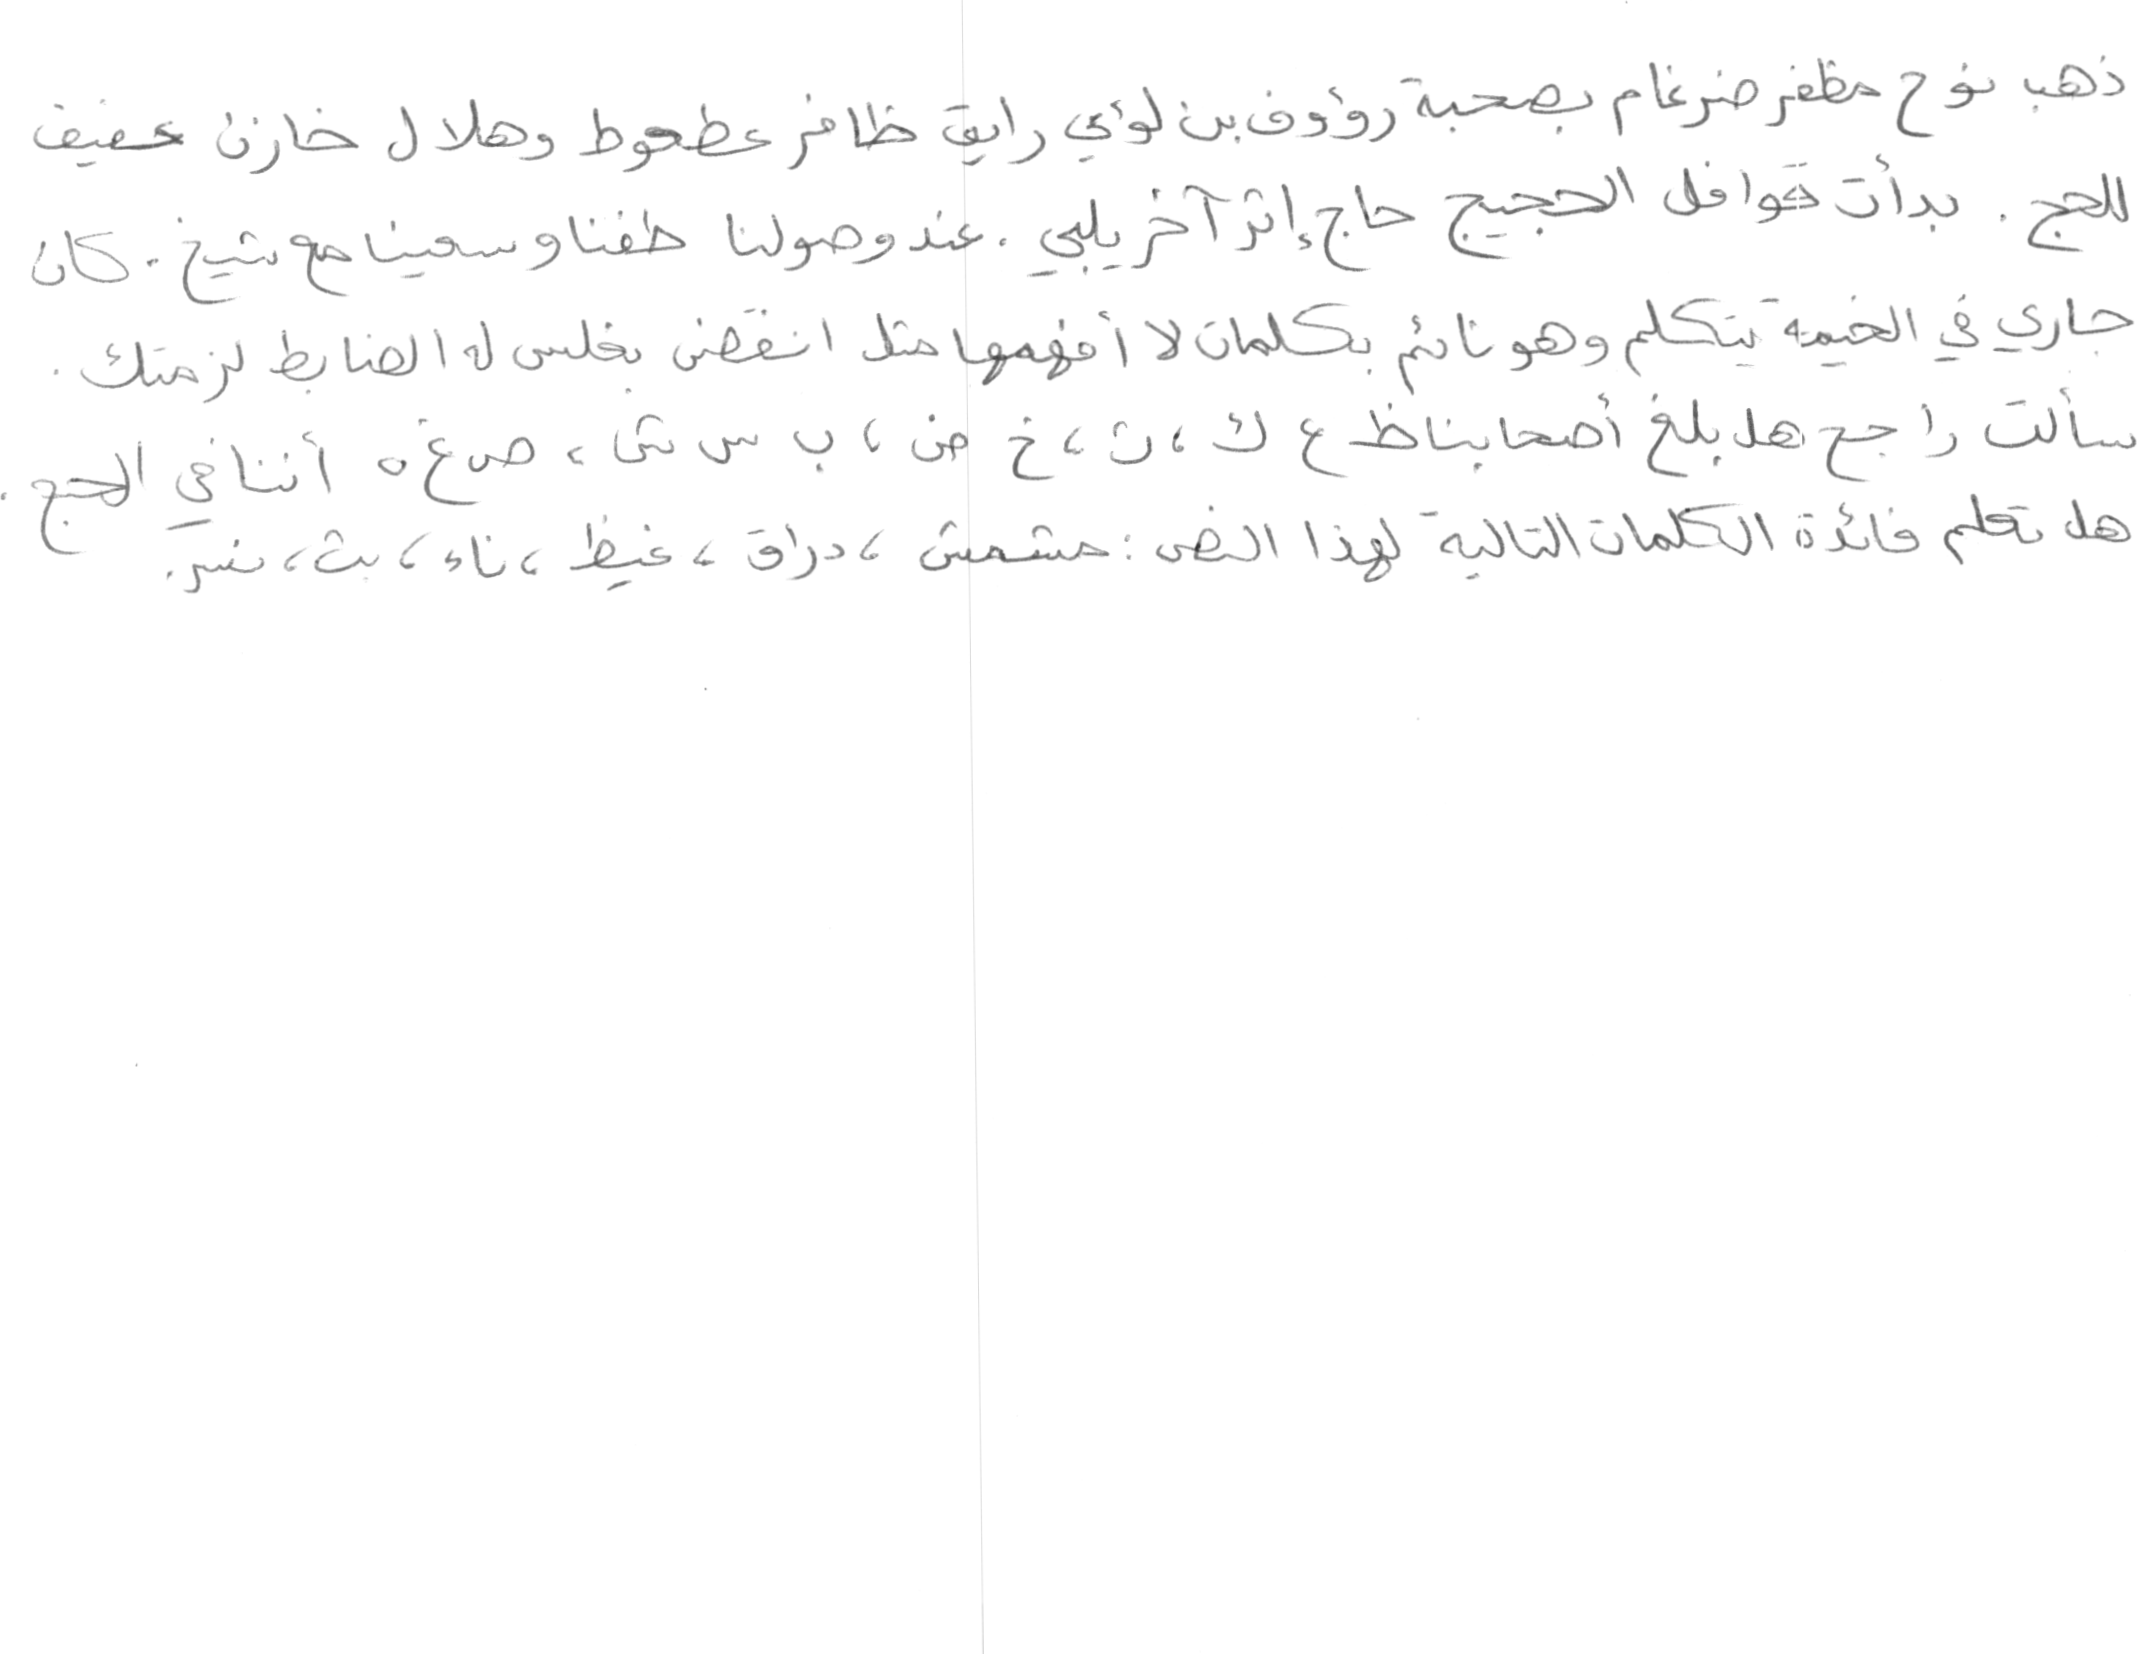 ذهب نوح مظفر ضرغام بصحبة رؤوف بن لؤي رايق ظافر عطعوط وهلال خازن عفيف
للحج . بدأت قوافل الحجيج حاج إثر آخر يلبي . عند وصولنا طفنا وسعينا مع شيخ . كان
جاري في الخيمه يتكلم وهو نائم بكلمات لا أفهمها مثل انقض بغلس له الضابط لزمتك .
سألت راجح هل بلغ أصحابنا ظ ع ك ، ث ، خ ض ، ب س ش ، ص غ ه أننا في الحج .
هل تعلم فائدة الكلمات التالية لهذا النص : مشمش ، دراق ، غيظ ، ناء ، بث ، نسر .